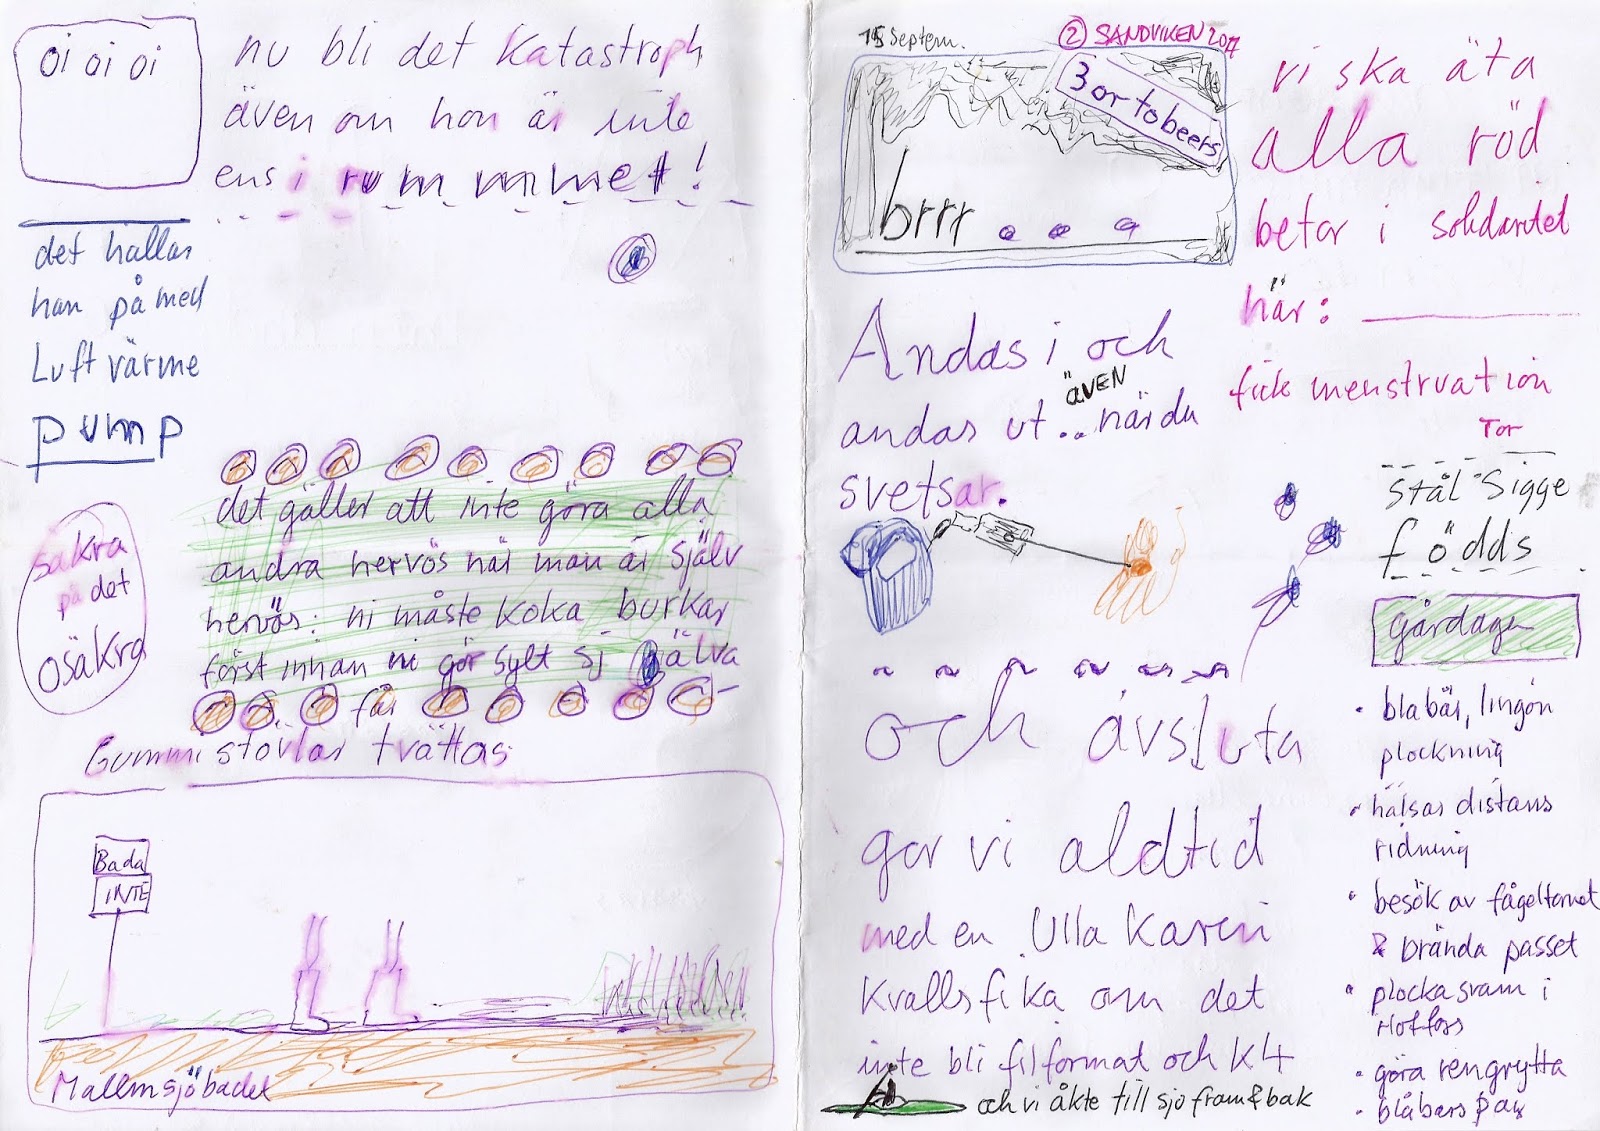 oi oi oi
nu bli det katastroph
även om hon är inte
ens i rummmmet!
det hallas
han på med
Luftvärme
pump
det gäller att inte göra alla
andra hervös när man är själv
hervös: ni måste koka burkar
först innan ni gör sylt sj själva
säkra
på det
osäkra
får
Gummistövlar tvättas
Bada
INTE
Mallmsjöbadet
15 Septem.
② SANDVIKEN 2017
3 or to beers
brrr
vi ska äta
alla röd
betor i solidaritet
här:
fick menstruation
Tor
stål Sigge
födds
Andas i och
ÄVEN
andas ut .. när du
svetsar.
och avsluta
gor vi aldtid
med en Ulla Karin
Kralls fika om det
inte bli filformat och K4
och vi åkte till sjo fram & bak
gårdagen
• blabär, lingon
plockning
• hälsas distans
ridning
• besök av fågeltornet
& brända passet
• plocka svam i
Hoffors
• göra rengrytta
• blåbärs paj